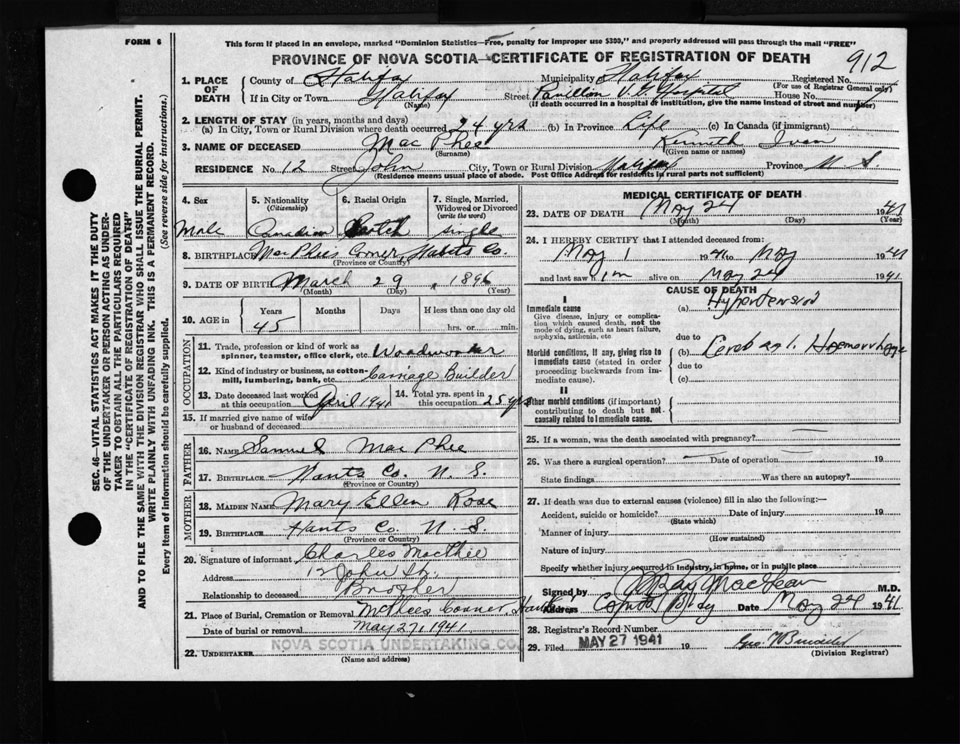 FORM 6
This form if placed in an envelope, marked "Dominion Statistics—Free, penalty for improper use $300," and properly addressed will pass through the mail "FREE"
PROVINCE OF NOVA SCOTIA—CERTIFICATE OF REGISTRATION OF DEATH
912
1. PLACE OF DEATH
County of Halifax Municipality Halifax Registered No.
(For use of Registrar General only)
If in City or Town Halifax Street Pavillion V.G. Hospital House No.
(Name) (If death occurred in a hospital or institution, give the name instead of street and number)
2. LENGTH OF STAY (in years, months and days)
(a) In City, Town or Rural Division where death occurred 24 yrs (b) In Province Life (c) In Canada (if immigrant)
3. NAME OF DECEASED Mac Phee Kenneth Ivan
(Surname) (Given name or names)
RESIDENCE No. 12 Street John City, Town or Rural Division Halifax Province N. S.
(Residence means usual place of abode. Post Office Address for residents in rural parts not sufficient)
4. Sex
Male
5. Nationality
(Citizenship)
Canadian
6. Racial Origin
Scotch
7. Single, Married, Widowed or Divorced
(write the word)
Single
8. BIRTHPLACE MacPhee's Corner, Hants Co.
(Province or Country)
9. DATE OF BIRTH March 29, 1896
(Month) (Day) (Year)
10. AGE in
Years Months Days If less than one day old
45 hrs. or min.
OCCUPATION
11. Trade, profession or kind of work as spinner, teamster, office clerk, etc. Woodworker
12. Kind of industry or business, as cotton-mill, lumbering, bank, etc. Carriage Builder
13. Date deceased last worked at this occupation April 1941
14. Total yrs. spent in this occupation 25 yrs
15. If married give name of wife or husband of deceased
FATHER
16. NAME Samuel MacPhee
17. BIRTHPLACE Hants Co. N. S.
(Province or Country)
MOTHER
18. MAIDEN NAME Mary Ellen Rose
19. BIRTHPLACE Hants Co. N. S.
(Province or Country)
20. Signature of informant Charles MacPhee
Address 12 John St.
Relationship to deceased Brother
21. Place of Burial, Cremation or Removal McPhees Corner, Hants
Date of burial or removal May 27, 1941
22. UNDERTAKER NOVA SCOTIA UNDERTAKING CO.
(Name and address)
MEDICAL CERTIFICATE OF DEATH
23. DATE OF DEATH May 24 1941
(Month) (Day) (Year)
24. I HEREBY CERTIFY that I attended deceased from:
May 1 1941 to May 1941
and last saw him alive on May 24 1941
CAUSE OF DEATH
I
Immediate cause
Give disease, injury or complication which caused death, not the mode of dying, such as heart failure, asphyxia, asthenia, etc.
(a) Hypertension
due to
Morbid conditions, if any, giving rise to immediate cause (stated in order proceeding backwards from immediate cause).
(b) Cerebral Haemorrhage
due to
(c)
II
Other morbid conditions (if important) contributing to death but not causally related to immediate cause.
25. If a woman, was the death associated with pregnancy?
26. Was there a surgical operation? Date of operation 19
State findings Was there an autopsy?
27. If death was due to external causes (violence) fill in also the following:—
Accident, suicide or homicide? Date of injury 19
(State which)
Manner of injury
(How sustained)
Nature of injury
Specify whether injury occurred in industry, in home, or in public place
Signed by MacLean M.D.
Address Date May 24 1941
28. Registrar's Record Number
29. Filed MAY 27 1941 19
(Division Registrar)
SEC. 46—VITAL STATISTICS ACT MAKES IT THE DUTY
OF THE UNDERTAKER OR PERSON ACTING AS UNDER-
TAKER TO OBTAIN ALL THE PARTICULARS REQUIRED
IN THE "CERTIFICATE OF REGISTRATION OF DEATH"
AND TO FILE THE SAME WITH THE DIVISION REGISTRAR WHO SHALL ISSUE THE BURIAL PERMIT.
WRITE PLAINLY WITH UNFADING INK. THIS IS A PERMANENT RECORD.
Every item of information should be carefully supplied. (See reverse side for instructions.)